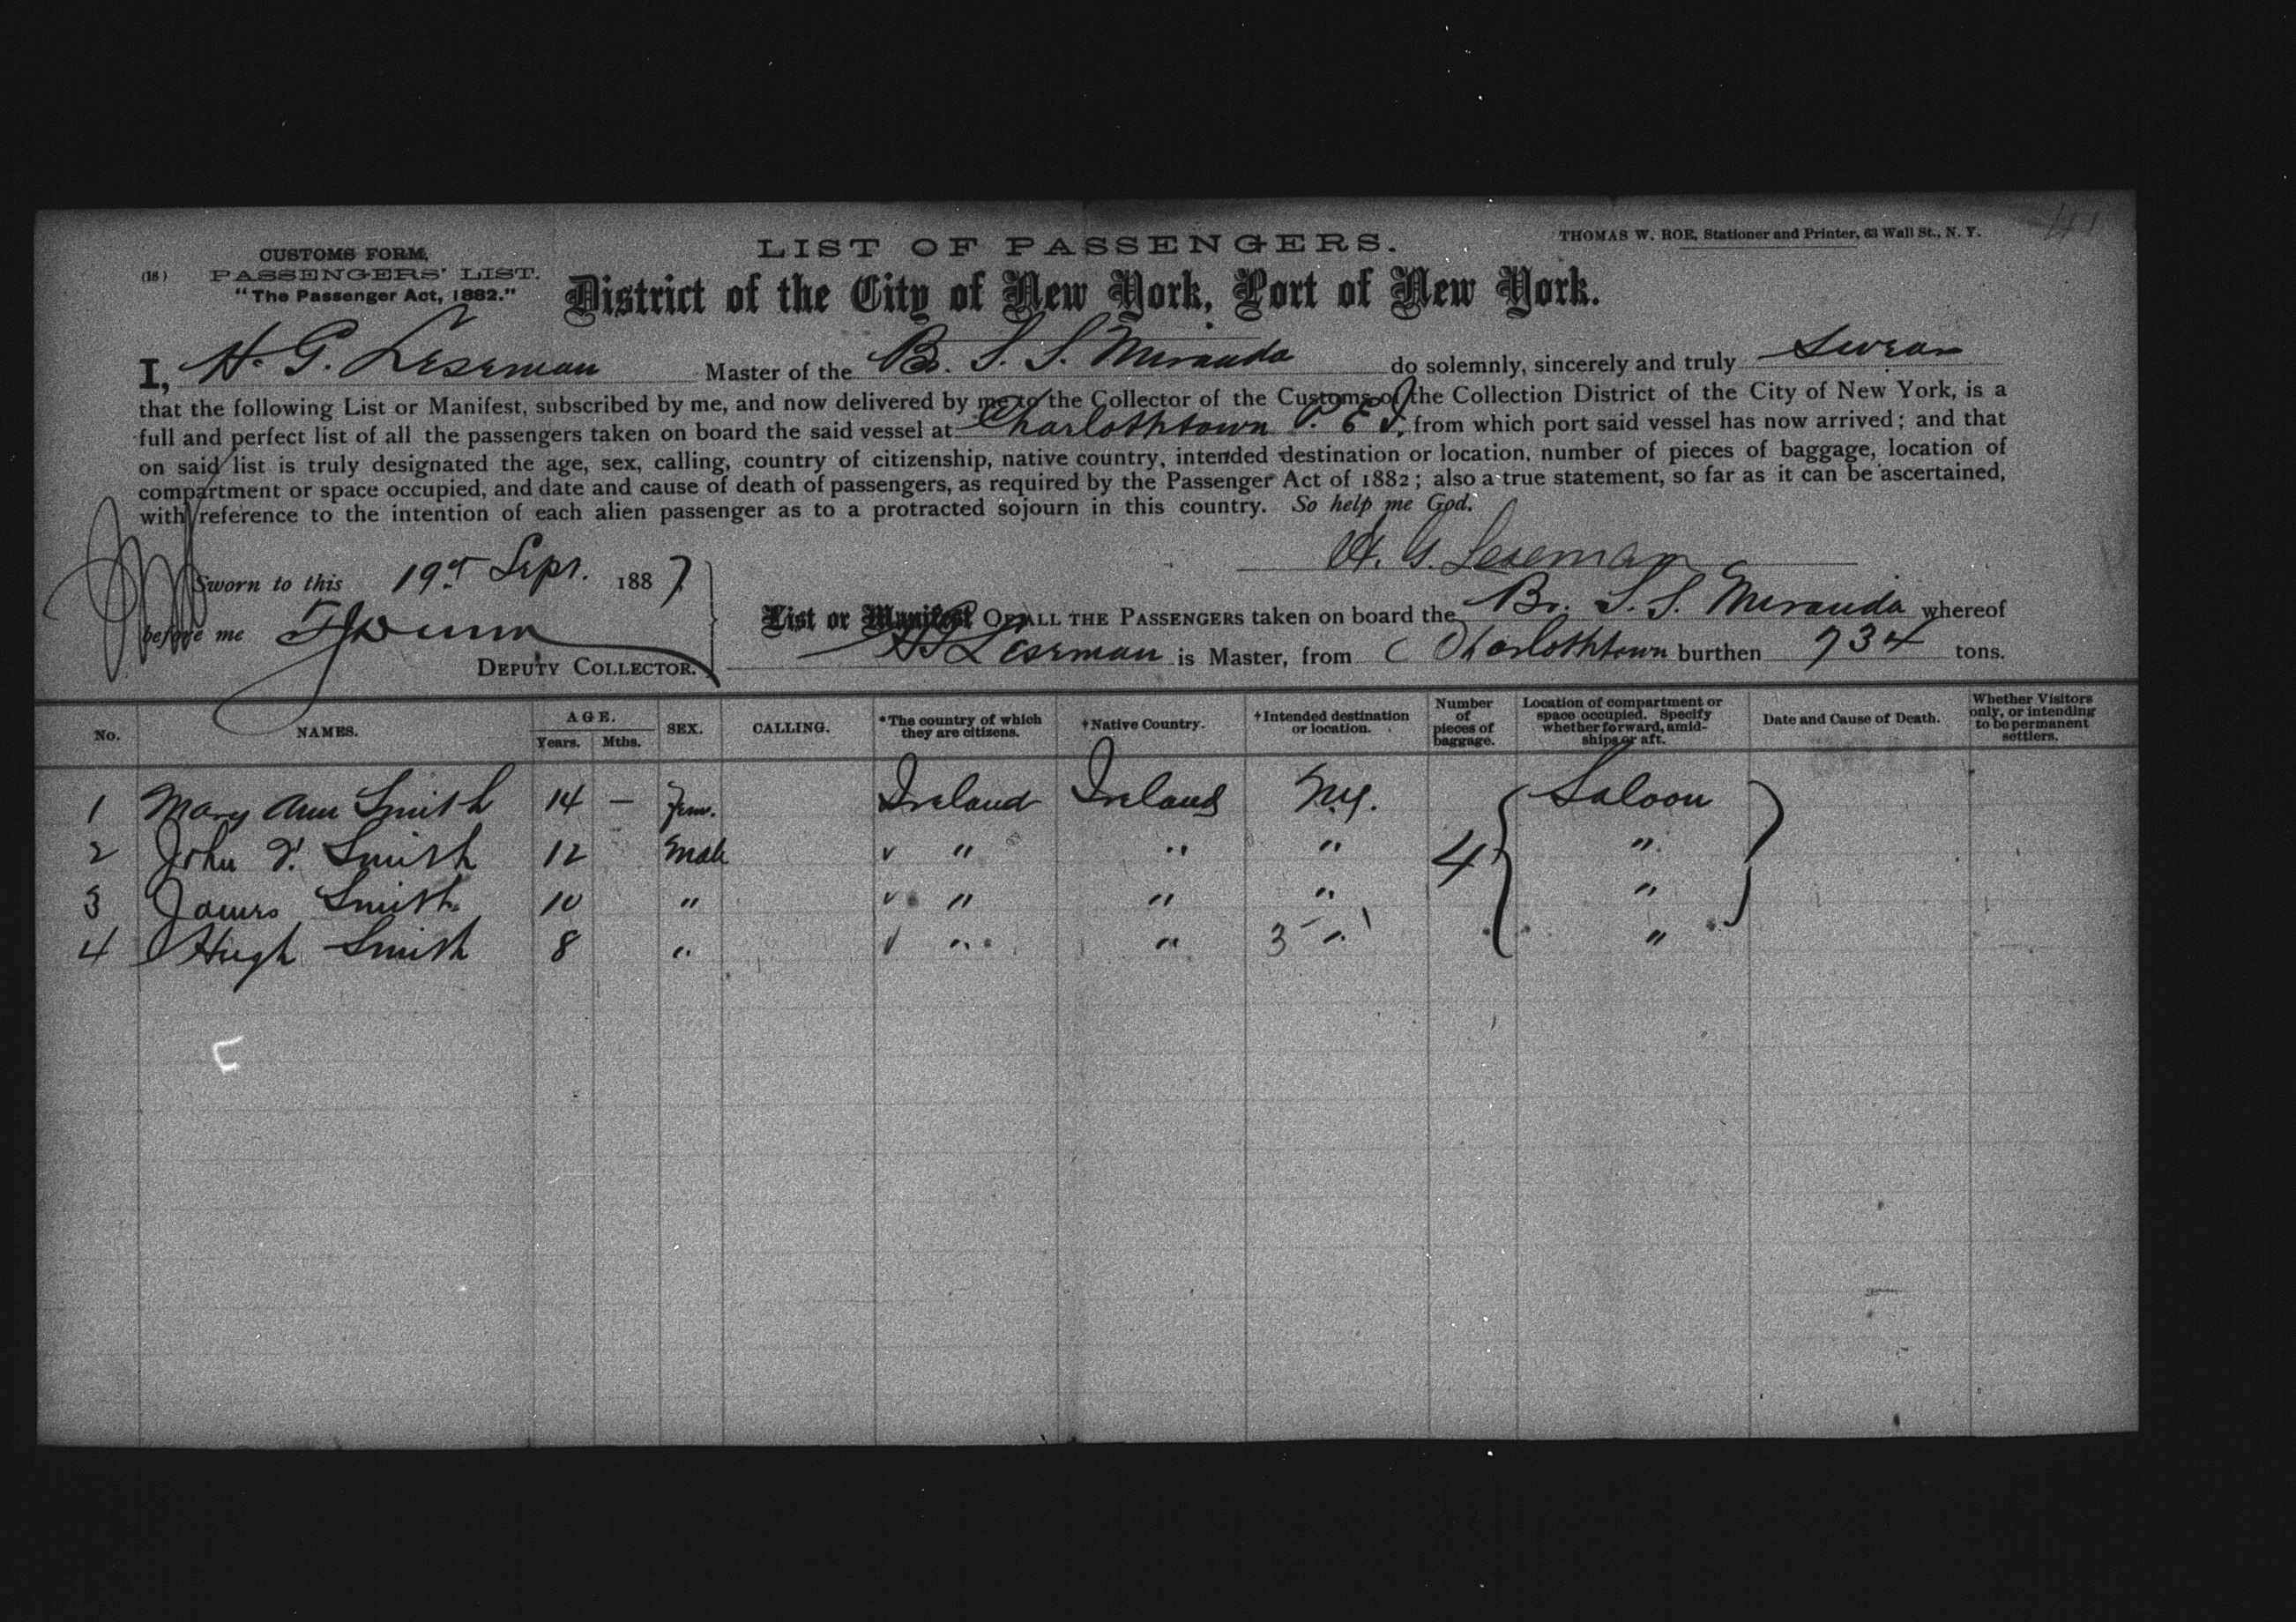 LIST OF PASSENGERS.
THOMAS W. ROE, Stationer and Printer, 63 Wall St., N. Y.
41
CUSTOMS FORM,
(18) PASSENGERS' LIST.
"The Passenger Act, 1882."
District of the City of New York, Port of New York.
I, H. G. Leseman Master of the Br. S. S. Miranda do solemnly, sincerely and truly Swear
that the following List or Manifest, subscribed by me, and now delivered by me to the Collector of the Customs of the Collection District of the City of New York, is a
full and perfect list of all the passengers taken on board the said vessel at Charlothtown P. E I. from which port said vessel has now arrived; and that
on said list is truly designated the age, sex, calling, country of citizenship, native country, intended destination or location, number of pieces of baggage, location of
compartment or space occupied, and date and cause of death of passengers, as required by the Passenger Act of 1882; also a true statement, so far as it can be ascertained,
with reference to the intention of each alien passenger as to a protracted sojourn in this country. So help me God.
H. G. Leseman
Sworn to this 19th Sept. 1887
before me
DEPUTY COLLECTOR.
List or Manifest OF ALL THE PASSENGERS taken on board the Br. S. S. Miranda whereof
H G Leseman is Master, from Charlothtown burthen 734 tons.
No. NAMES. AGE. Years. Mths. SEX. CALLING. *The country of which they are citizens. †Native Country. †Intended destination or location. Number of pieces of baggage. Location of compartment or space occupied. Specify whether forward, amidships or aft. Date and Cause of Death. Whether Visitors only, or intending to be permanent settlers.
1 Mary Ann Smith 14 — Fem. Ireland Ireland N.Y. Saloon
2 John Smith 12 Male " " " 4 "
3 James Smith 10 " " " " "
4 Hugh Smith 8 " " " 3 " "